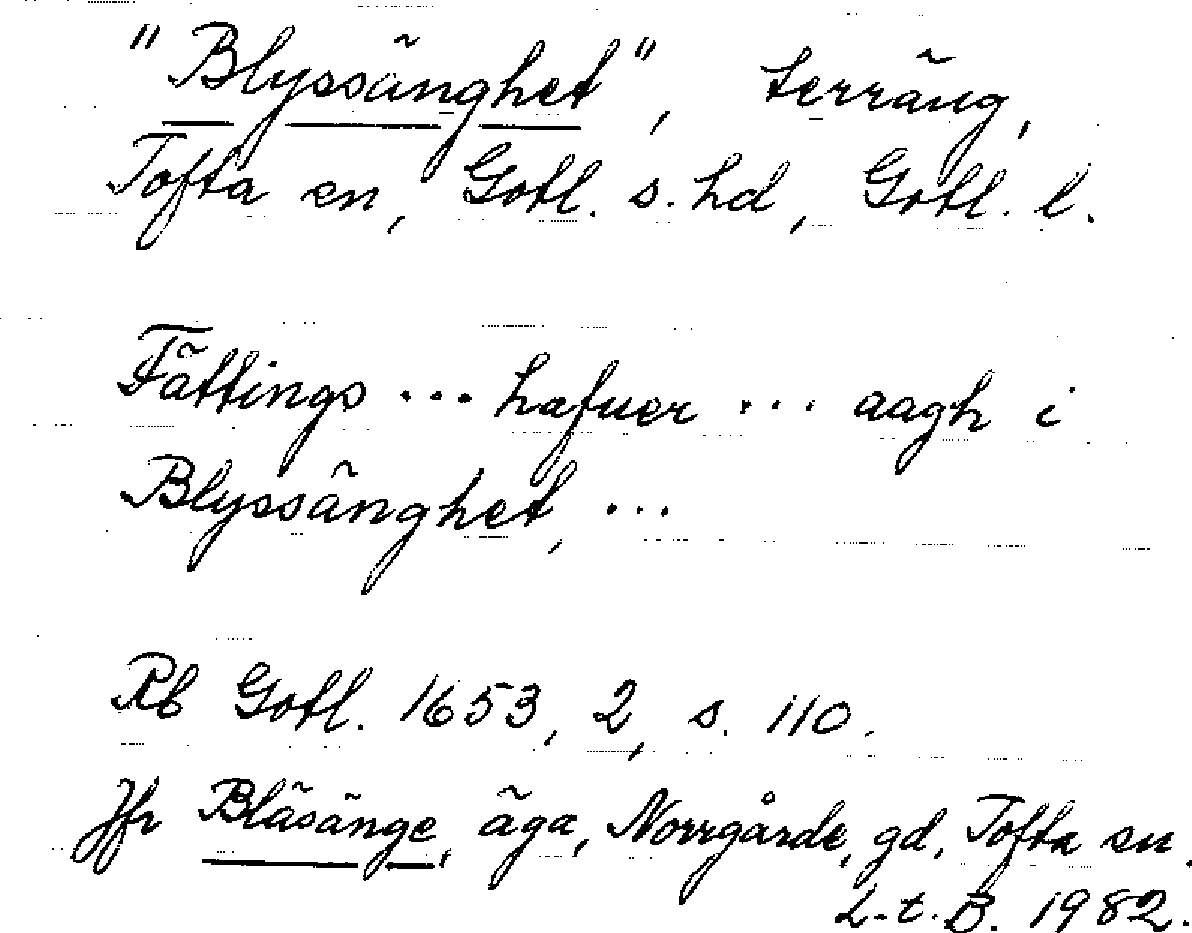 "Blyssänghet", terräng,
Tofta sn, Gotl. s. hd, Gotl. l.
Fättings ... hafuer ... aagh i
Blyssänghet, ...
Rb Gotl. 1653, 2, s. 110.
Jfr Bläsänge, äga, Norrgårde, gd, Tofta sn.
L-t. B. 1982.